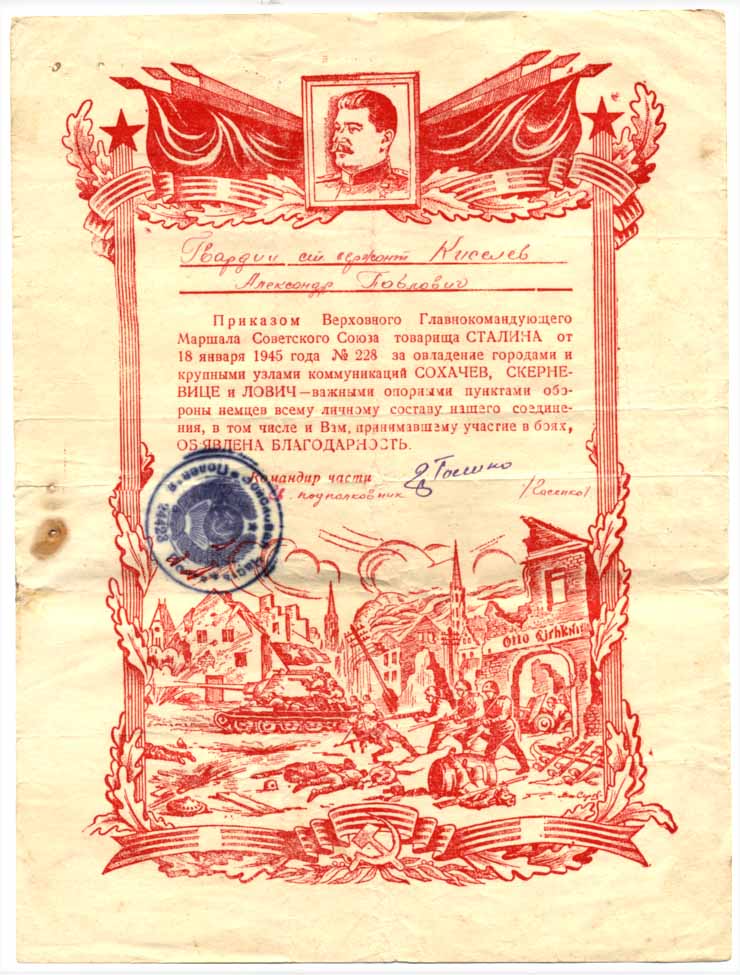 Гвардии ст. сержант Киселев
Александр Павлович
Приказом Верховного Главнокомандующего
Маршала Советского Союза товарища СТАЛИНА от
18 января 1945 года № 228 за овладение городами и
крупными узлами коммуникаций СОХАЧЕВ, СКЕРНЕ-
ВИЦЕ и ЛОВИЧ—важными опорными пунктами обо-
роны немцев всему личному составу нашего соедине-
ния, в том числе и Вам, принимавшему участие в боях,
ОБ'ЯВЛЕНА БЛАГОДАРНОСТЬ.
Командир части
подполковник
Полевая
Otto